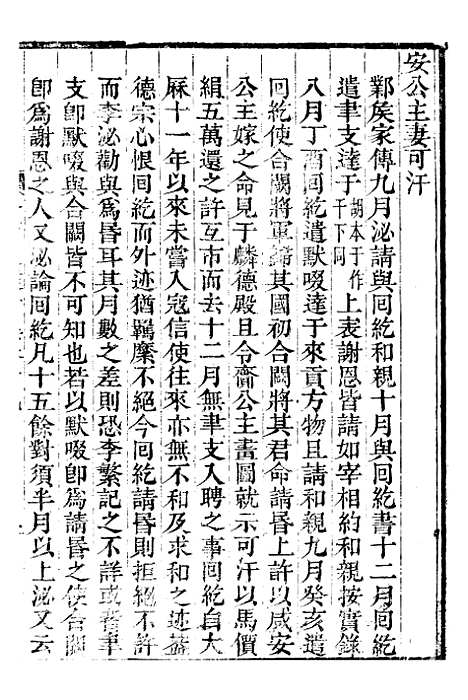 安公主妻可汗
鄴侯家傳九月泌請與回紇和親十月與回紇書十二月回紇
遣聿支達于胡本于作干下同上表謝恩皆請如宰相約和親按實錄
八月丁酉回紇遣默啜達于來貢方物且請和親九月癸亥遣
回紇使合闕將軍歸其國初合闕將其君命請昬上許以咸安
公主嫁之命見于麟德殿且令齎公主畫圖就示可汗以馬價
絹五萬還之許互市而去十二月無聿支入聘之事回紇自大
厤十一年以來未嘗入寇信使往來亦無不和及求和之迹葢
德宗心恨回紇而外迹猶羈縻不絕今回紇請昬則拒絕不許
而李泌勸與爲昬耳其月數之差則恐李繁記之不詳或者聿
支卽默啜與合闕皆不可知也若以默啜卽爲請昬之使合闕
卽爲謝恩之人又泌論回紇凡十五餘對須半月以上泌又云